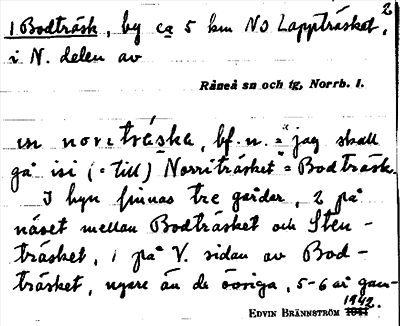 2
1 Bodträsk, by ca 5 km NO Lappträsket,
i N. delen av
Råneå sn och tg, Norrb. l.
nɔrɪtrǽska, bf. n. = "jag skall
gå isi (= till) Norriträsket = Bodträsk.
I byn finnas tre gårdar, 2 på
näset mellan Bodträsket och Sten-
träsket, 1 på V. sidan av Bod-
träsket, nyare än de övriga, 5-6 år gam-
EDVIN BRÄNNSTRÖM 1942.